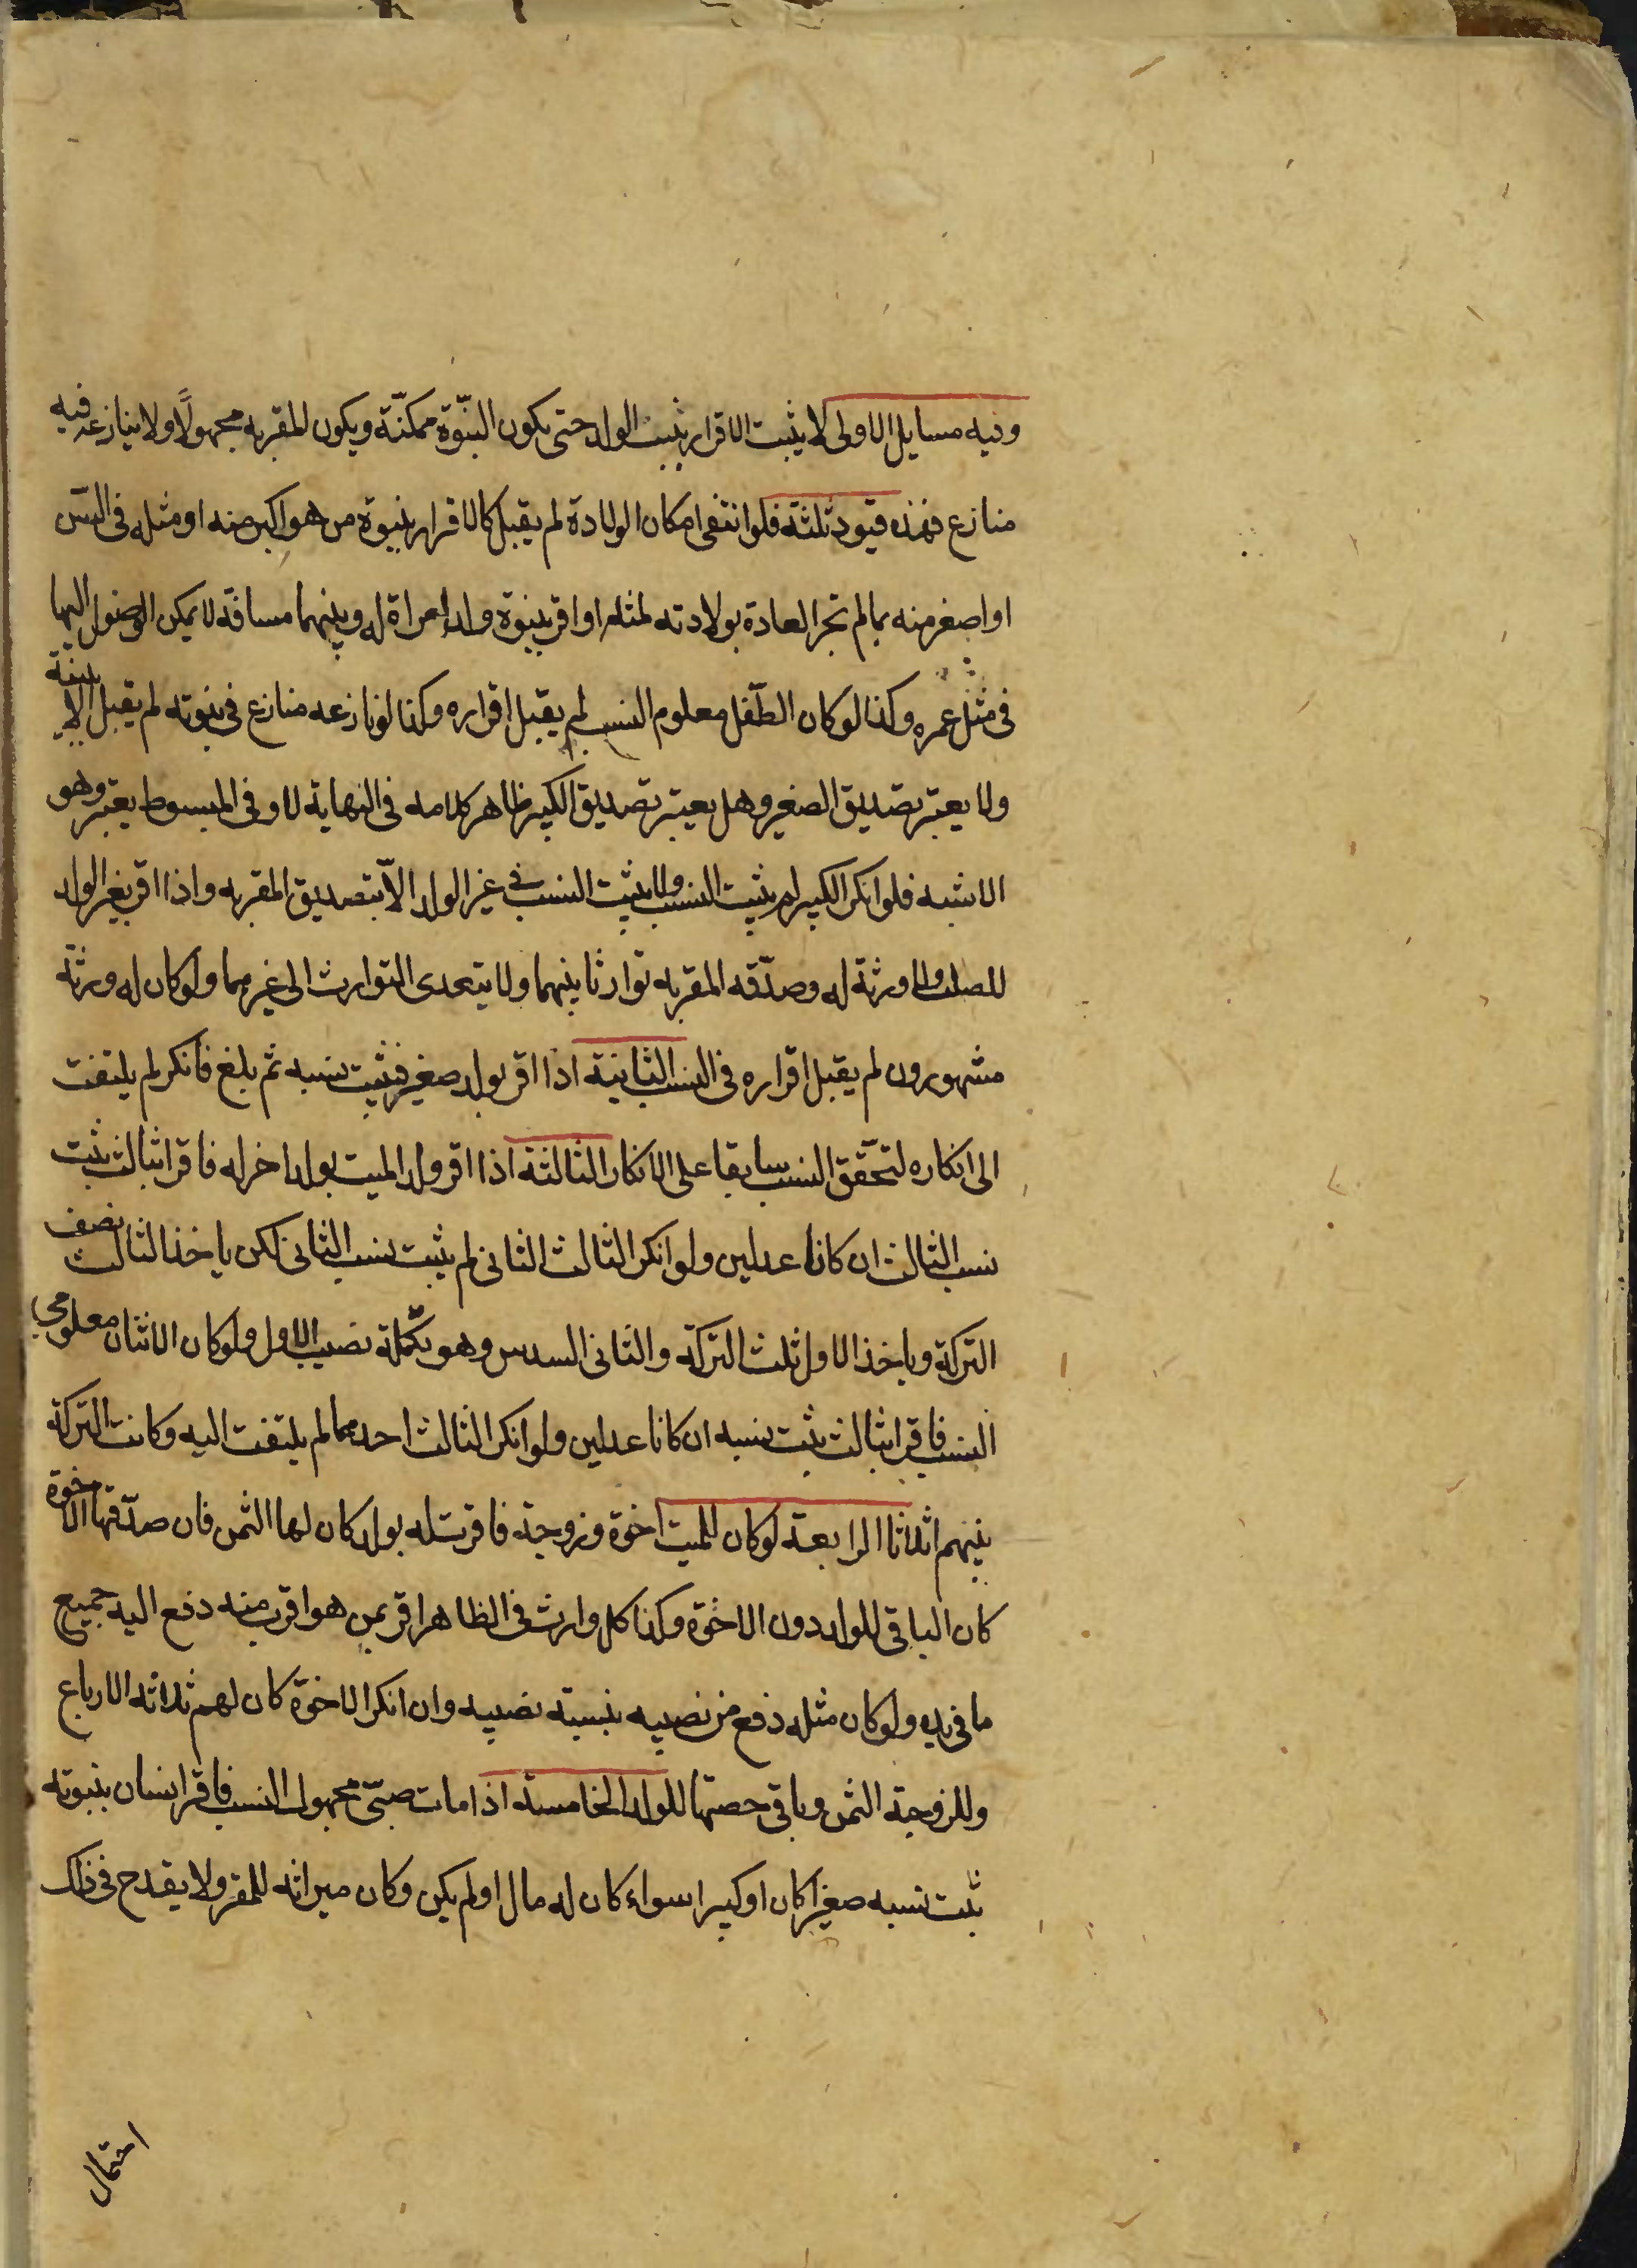 وفيه مسايل الاولى لا يثبت الاقرار بنسب الولد حتى يكون البنوّة ممكنّة ويكون المقر به مجهولًا ولا ينازعه فيه
منازع فهذه قيود ثلثة فلو انتفى امكان الولادة لم يقبل كالاقرار ببنوة من هو اكبر منه او مثله في السّن
او اصغر منه بما لم تجر العادة بولادته لمثله او اقر ببنوة ولد امراة له وبينهما مسافة لا يمكن الوصول اليها
في مثل عمره وكذا لو كان الطفل معلوم النسب لم يقبل اقراره وكذا لو نازعه منازع في بنوته لم يقبل الا ببينة
ولا يعتبر تصديق الصغير وهل يعتبر تصديق الكبير ظاهر كلامه في النهاية لا وفي المبسوط يعتبر وهو
الاشبه فلو انكر الكبير لم يثبت النسب ولا يثبت النسب في غير الولد الاّ بتصديق المقر به واذا اقر بغير الولد
للصلب ولا ورثة له وصدّقه المقر به توارثا بينهما ولا يتعدى التوارث الى غيرهما ولو كان له ورثة
مشهورون لم يقبل اقراره في النسب الثانية اذا اقر بولد صغير فثبت نسبه ثم بلغ فانكر لم يلتفت
الى انكاره لتحقق النسب سابقا على الانكار الثالثة اذا اقر ولد الميت بولد اخر له فاقرا بثالث ثبت
نسب الثالث ان كانا عدلين ولو انكر الثالث الثاني لم يثبت نسب الثاني لكن ياخذ الثالث نصف
التركة وياخذ الاول ثلث التركة والثاني السدس وهو تكملة نصيب الاول ولو كان الاثنان معلومي
النسب فاقرا بثالث ثبت نسبه ان كانا عدلين ولو انكر الثالث احدهما لم يلتفت اليه وكانت التركة
بينهم اثلاثا الرابعة لو كان للميت اخوة وزوجة فاقرت له بولد كان لها الثمن فان صدّقها الاخوة
كان الباقي للولد دون الاخوة وكذا كل وارث في الظاهر اقر بمن هو اقرب منه دفع اليه جميع
ما في يده ولو كان مثله دفع من نصيبه بنسبة نصيبه وان انكر الاخوة كان لهم ثلاثه الارباع
وللزوجة الثمن وباقي حصتها للولد الخامسة اذا مات صبّي مجهول النسب فاقر انسان ببنوته
ثبت نسبه صغيرا كان او كبيرا سواء كان له مال او لم يكن وكان ميراثه للمقر ولا يقدح في ذلك
احتمال